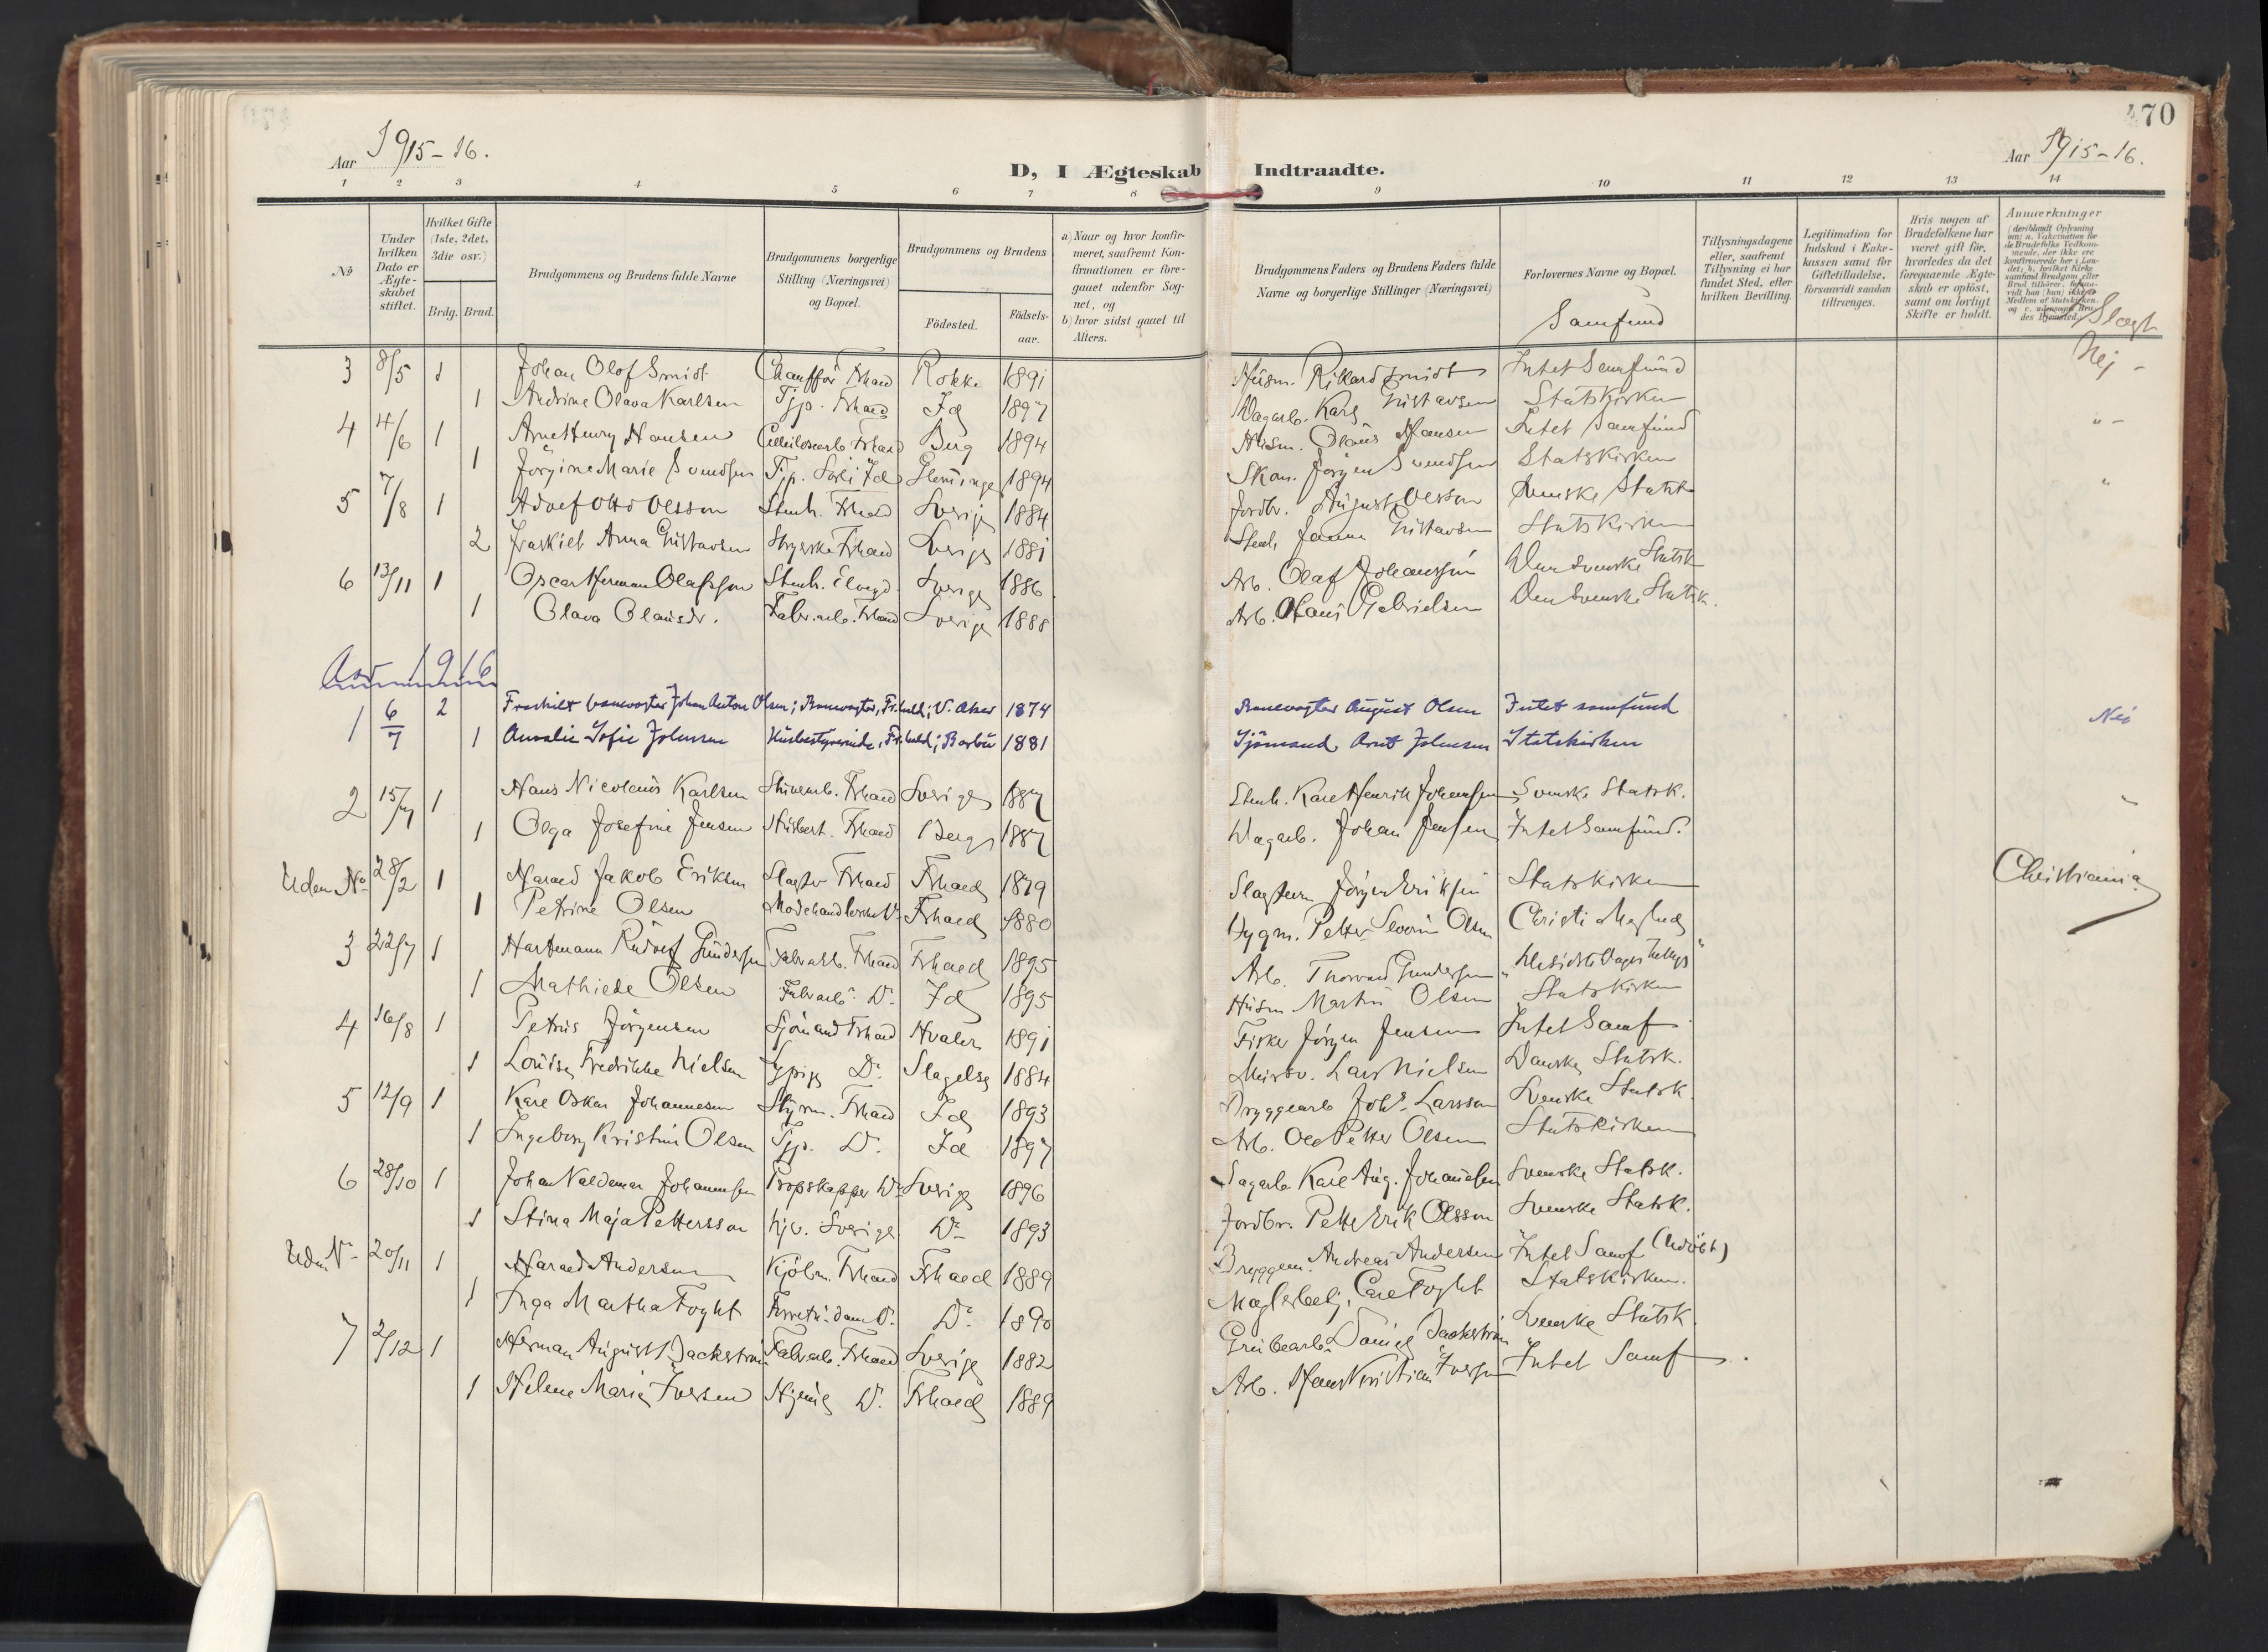 470
Aar 1915-16.
D, I Ægteskab Indtraadte.
Aar 1915-16.
1 2 3 4 5 6 7 8 9 10 11 12 13 14
No
Under hvilken Dato er Ægte-skabet stiftet.
Hvilket Gifte (1ste, 2det, 3die osv.)
Brdg. Brud.
Brudgommens og Brudens fulde Navne
Brudgommens borgerlige Stilling (Næringsvei) og Bopæl.
Brudgommens og Brudens
Födested. Födsels-aar.
a) Naar og hvor konfir-meret, saafremt Kon-firmationen er fore-gaaet udenfor Sog-net, og
b) hvor sidst gaaet til Alters.
Brudgommens Faders og Brudens Faders fulde Navne og borgerlige Stillinger (Næringsvei)
Forlovernes Navne og Bopæl.
Samfund
Tillysningsdagene eller, saafremt Tillysning ei har fundet Sted, efter hvilken Bevilling.
Legitimation for Indskud i Enke-kassen samt for Giftetilladelse, forsaavidt saadan tiltrænges.
Hvis nogen af Brudefolkene har været gift før, hvorledes da det foregaaende Ægte-skab er opløst, samt om lovligt Skifte er holdt.
Anmærkninger
Slægt
3 8/5 1 Johan Olof Smidt Chauffør Frhald Rokke 1891 Husm. Rikard Smidt Intet Samfund Nej -
1 Andrine Olava Karlsen Tjp. Frhald Id 1897 Dagarb. Karl Gustavsen Statskirken
4 4/6 1 Arne Henry Hansen Frhald Berg 1894 Husm. Olaus Hansen Intet Samfund " -
1 Jörgine Marie Svendsen Tjp. Id Glemminge 1894 Skom. Jørgen Svendsen Statskirken
5 7/8 1 Adolf Otto Olsson Stenh. Frhald Sverige 1884 Jordbr. August Olsson Svenske Statsk "
2 Fraskilt Anna Gustavsen Frhald Sverige 1881 Stenh. Gustavsen Statskirken
6 13/11 1 Oscar Herman Olafsson Stenh. Sverige 1886 Arb. Olaf Johansson Den Svenske Statsk
1 Olava Olausdr. Fabr.arb. Frhald Sverige 1888 Arb. Olaus Gabrielsen Den Svenske Statsk.
Aar 1916
1 6/7 2 Fraskilt banevogter Johan Anton Olsen; Banevogter, Fr.hald; V. Aker 1874 Banevogter August Olsen Intet samfund Nei
1 Amalie Sofie Johnsen Husbestyrerinde, Fr.hald; Barbu 1881 Sjömand Arnt Johnsen Statskirken
2 15/7 1 Hans Nicolaus Karlsen Frhald Sverige 1887 Stenh. Karl Henrik Johansen Svenske Statsk. "
1 Olga Josefine Jensen Husbest. Frhald Berg 1887 Dagarb. Johan Jensen Intet Samfund.
Uden No 28/2 1 Harald Jakob Eriksen Slagter Frhald Frhald 1879 Slagterm. Jörgen Eriksen Statskirken Christiania
1 Petrine Olsen Frhald 1880 Bygm. Petter Severin Olsen Christi Meghed
3 22/7 1 Hartmann Rudolf Gundersen Fabrarb. Frhald Frhald 1895 Arb. Thorvald Gundersen "De Sidste Dages Hellige"
1 Mathilde Olsen Fabrarb. Do. Id 1895 Husm. Martin Olsen Statskirken
4 16/8 1 Petrus Jörgensen Sjömand Frhald Hvaler 1891 Fisker Jörgen Jensen Intet Samf.
1 Louise Fredrikke Nielsen Do. Slagelse 1884 MurSv. Lars Nielsen Danske Statsk.
5 12/9 1 Karl Oskar Johannesen Styrm. Frhald Id 1893 Bryggearb Johs. Larsson Svenske Statsk.
1 Ingeborg Kristine Olsen Tjp. Do. Id 1897 Arb. Ole Petter Olsen Statskirken
6 28/10 1 Johan Valdemar Johannesen Propskapper Do Sverige 1896 Sagarb. Karl Aug. Johansen Svenske Statsk.
1 Stina Maja Pettersson Hjv. Sverige Do 1893 Jordbr. Petter Erik Olsson Svenske Statsk.
Uden No 20/11 1 Harald Andersen Kjöbm. Frhald Frhald 1889 Bryggem. Andreas Andersen Intet Samf (Udøbt)
1 Inga Martha Foght Do. Do. 1890 Mæglerbetj. Carl Foght Statskirken.
7 2/12 1 Herman August Backström Fabrarb. Frhald Sverige 1882 Grubearb. Daniel Backström Svenske Statsk.
1 Helene Marie Iversen Hjemme Do. Frhald 1889 Arb. Hans Kristian Iversen Intet Samf.